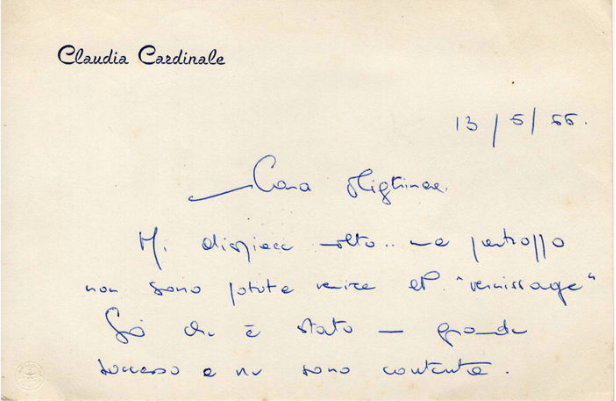 Claudia Cardinale
13/5/66.
Cara
Mi dispiace molto.. ma purtroppo
non sono potuta venire al "vernissage"
Sò che è stato un grande
successo e ne sono contenta.